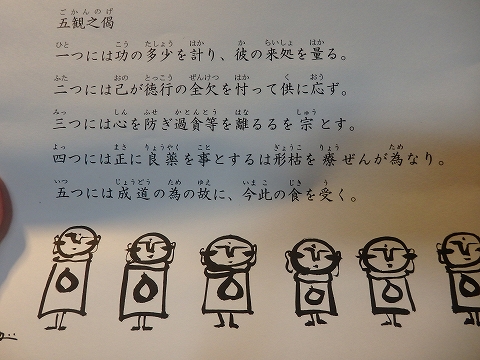 五観之偈
一つには功の多少を計り、彼の来処を量る。
二つには己が徳行の全欠を忖って供に応ず。
三つには心を防ぎ過貪等を離るるを宗とす。
四つには正に良薬を事とするは形枯を療ぜんが為なり。
五つには成道の為の故に、今此の食を受く。